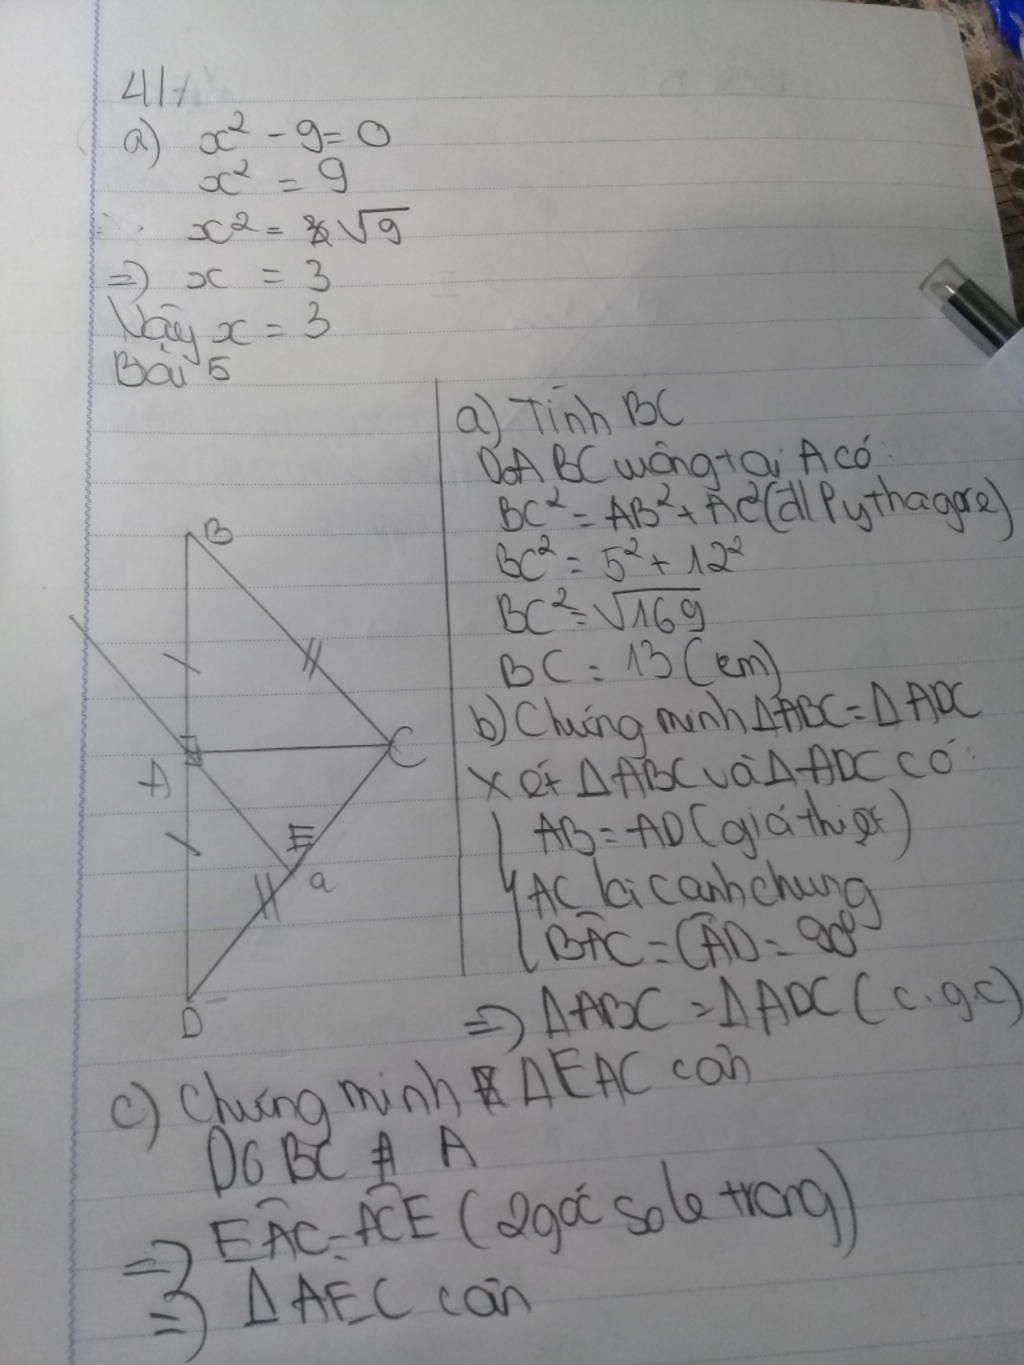 4/
a) x² - 9 = 0
x² = 9
x² = √9
=> x = 3
Vậy x = 3
Bài 5
a) Tính BC
Do ∆ ABC vuông tại A có:
BC² = AB² + AC² (đl Pythagore)
BC² = 5² + 12²
BC² = √169
BC = 13 (cm)
b) Chứng minh ∆ABC = ∆ADC
Xét ∆ABC và ∆ADC có:
AB = AD (giả thiết)
AC là cạnh chung
BÂC = CÂD = 90°
=> ∆ABC = ∆ADC (c.g.c)
B
A
C
E
a
D
c) Chứng minh ∆EAC cân
Do BC // A
=> EÂC = AĈE (2 góc so le trong)
=> ∆AEC cân